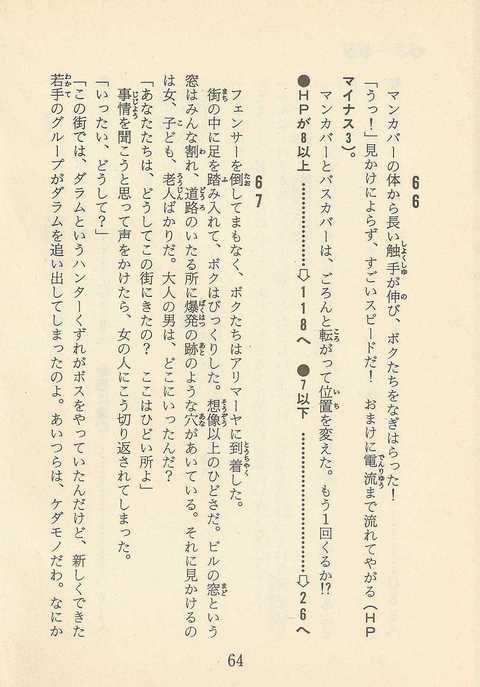 66
マンカバーの体から長い触手が伸び、ボクたちをなぎはらった！
「うっ！」見かけによらず、すごいスピードだ！　おまけに電流まで流れてやがる（HP
マイナス3）。
マンカバーとバスカバーは、ごろんと転がって位置を変えた。もう1回くるか!?
●HPが8以上………………⇨118へ　●7以下………………⇨26へ
67
フェンサーを倒してまもなく、ボクたちはアリマーヤに到着した。
街の中に足を踏み入れて、ボクはびっくりした。想像以上のひどさだ。ビルの窓という
窓はみんな割れ、道路のいたる所に爆発の跡のような穴があいている。それに見かけるの
は女、子ども、老人ばかりだ。大人の男は、どこにいったんだ？
「あなたたちは、どうしてこの街にきたの？　ここはひどい所よ」
事情を聞こうと思って声をかけたら、女の人にこう切り返されてしまった。
「いったい、どうして？」
「この街では、ダラムというハンターくずれがボスをやっていたんだけど、新しくできた
若手のグループがダラムを追い出してしまったのよ。あいつらは、ケダモノだわ。なにか
64